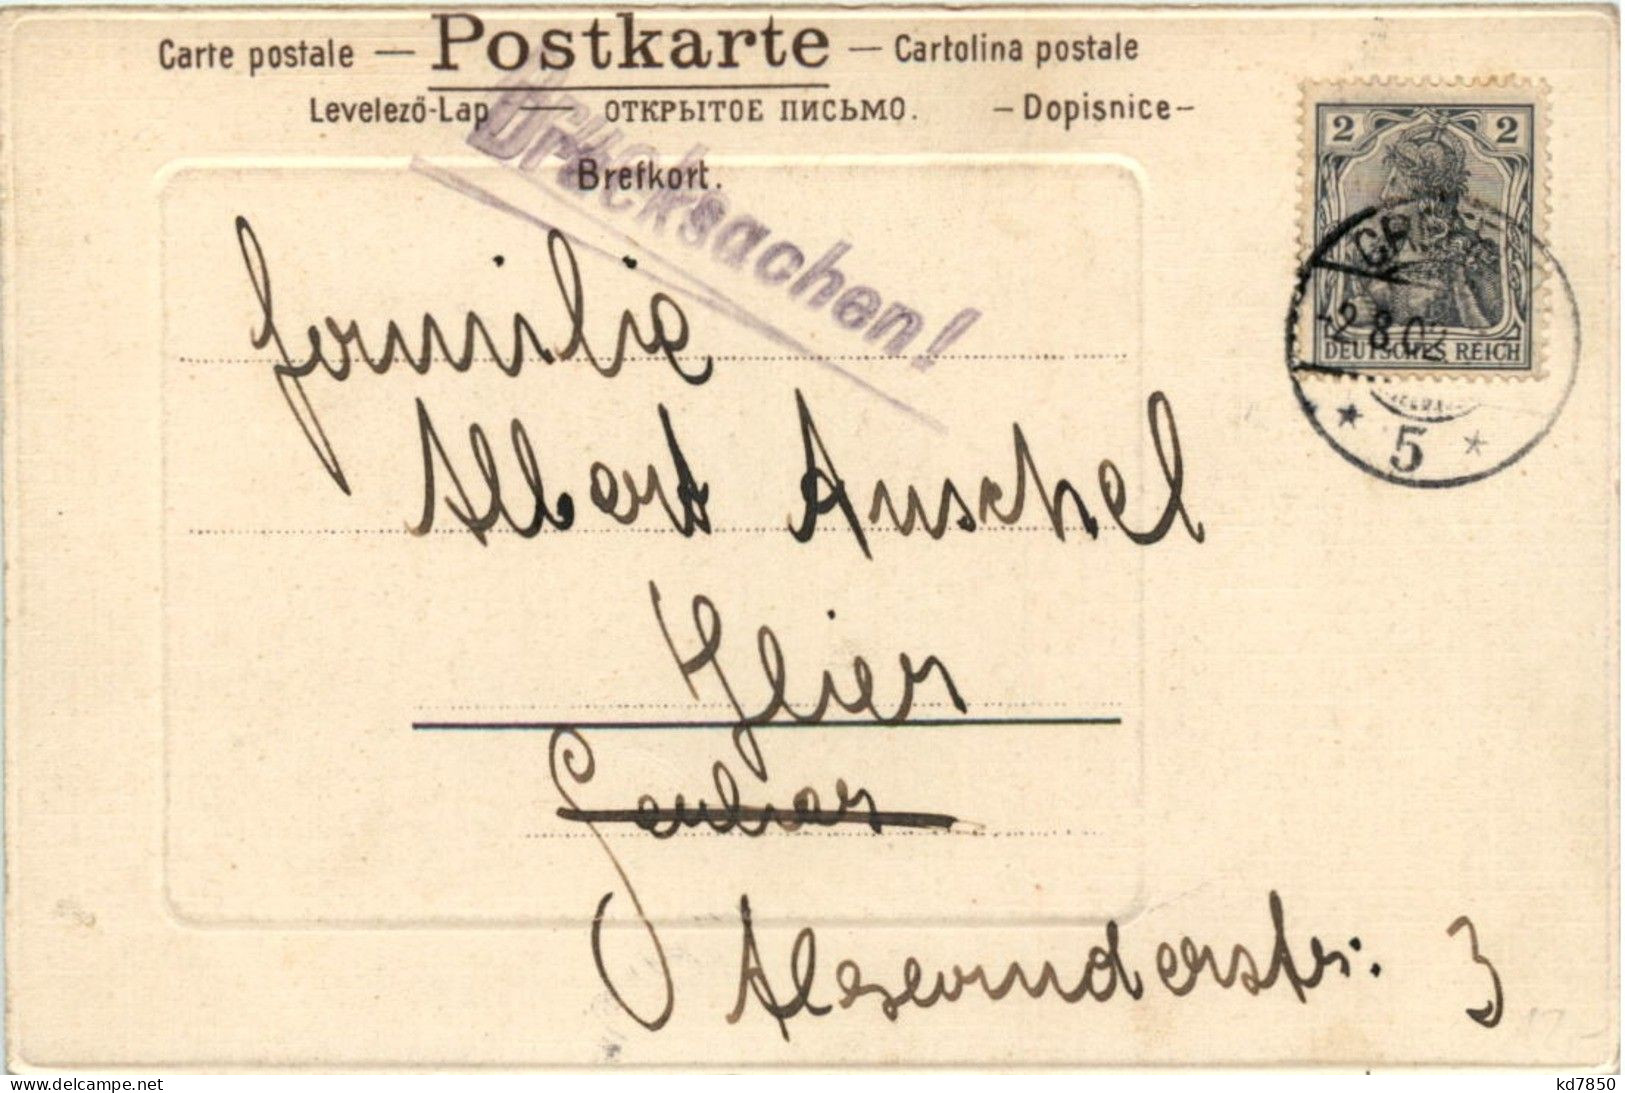 Carte postale — Postkarte — Cartolina postale
Levelező-Lap — ОТКРЫТОЕ ПИСЬМО. — Dopisnice —
Brefkort.
Drucksachen!
2 2
2.8.02
DEUTSCHES REICH
* 5 *
Familie
Albert Auschel
Hier
Alexanderstr. 3
12-
www.delcampe.net
kd7850